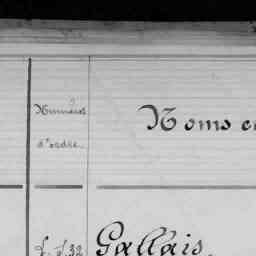 Numéros
d'ordre.
Noms e
32 Gallais.